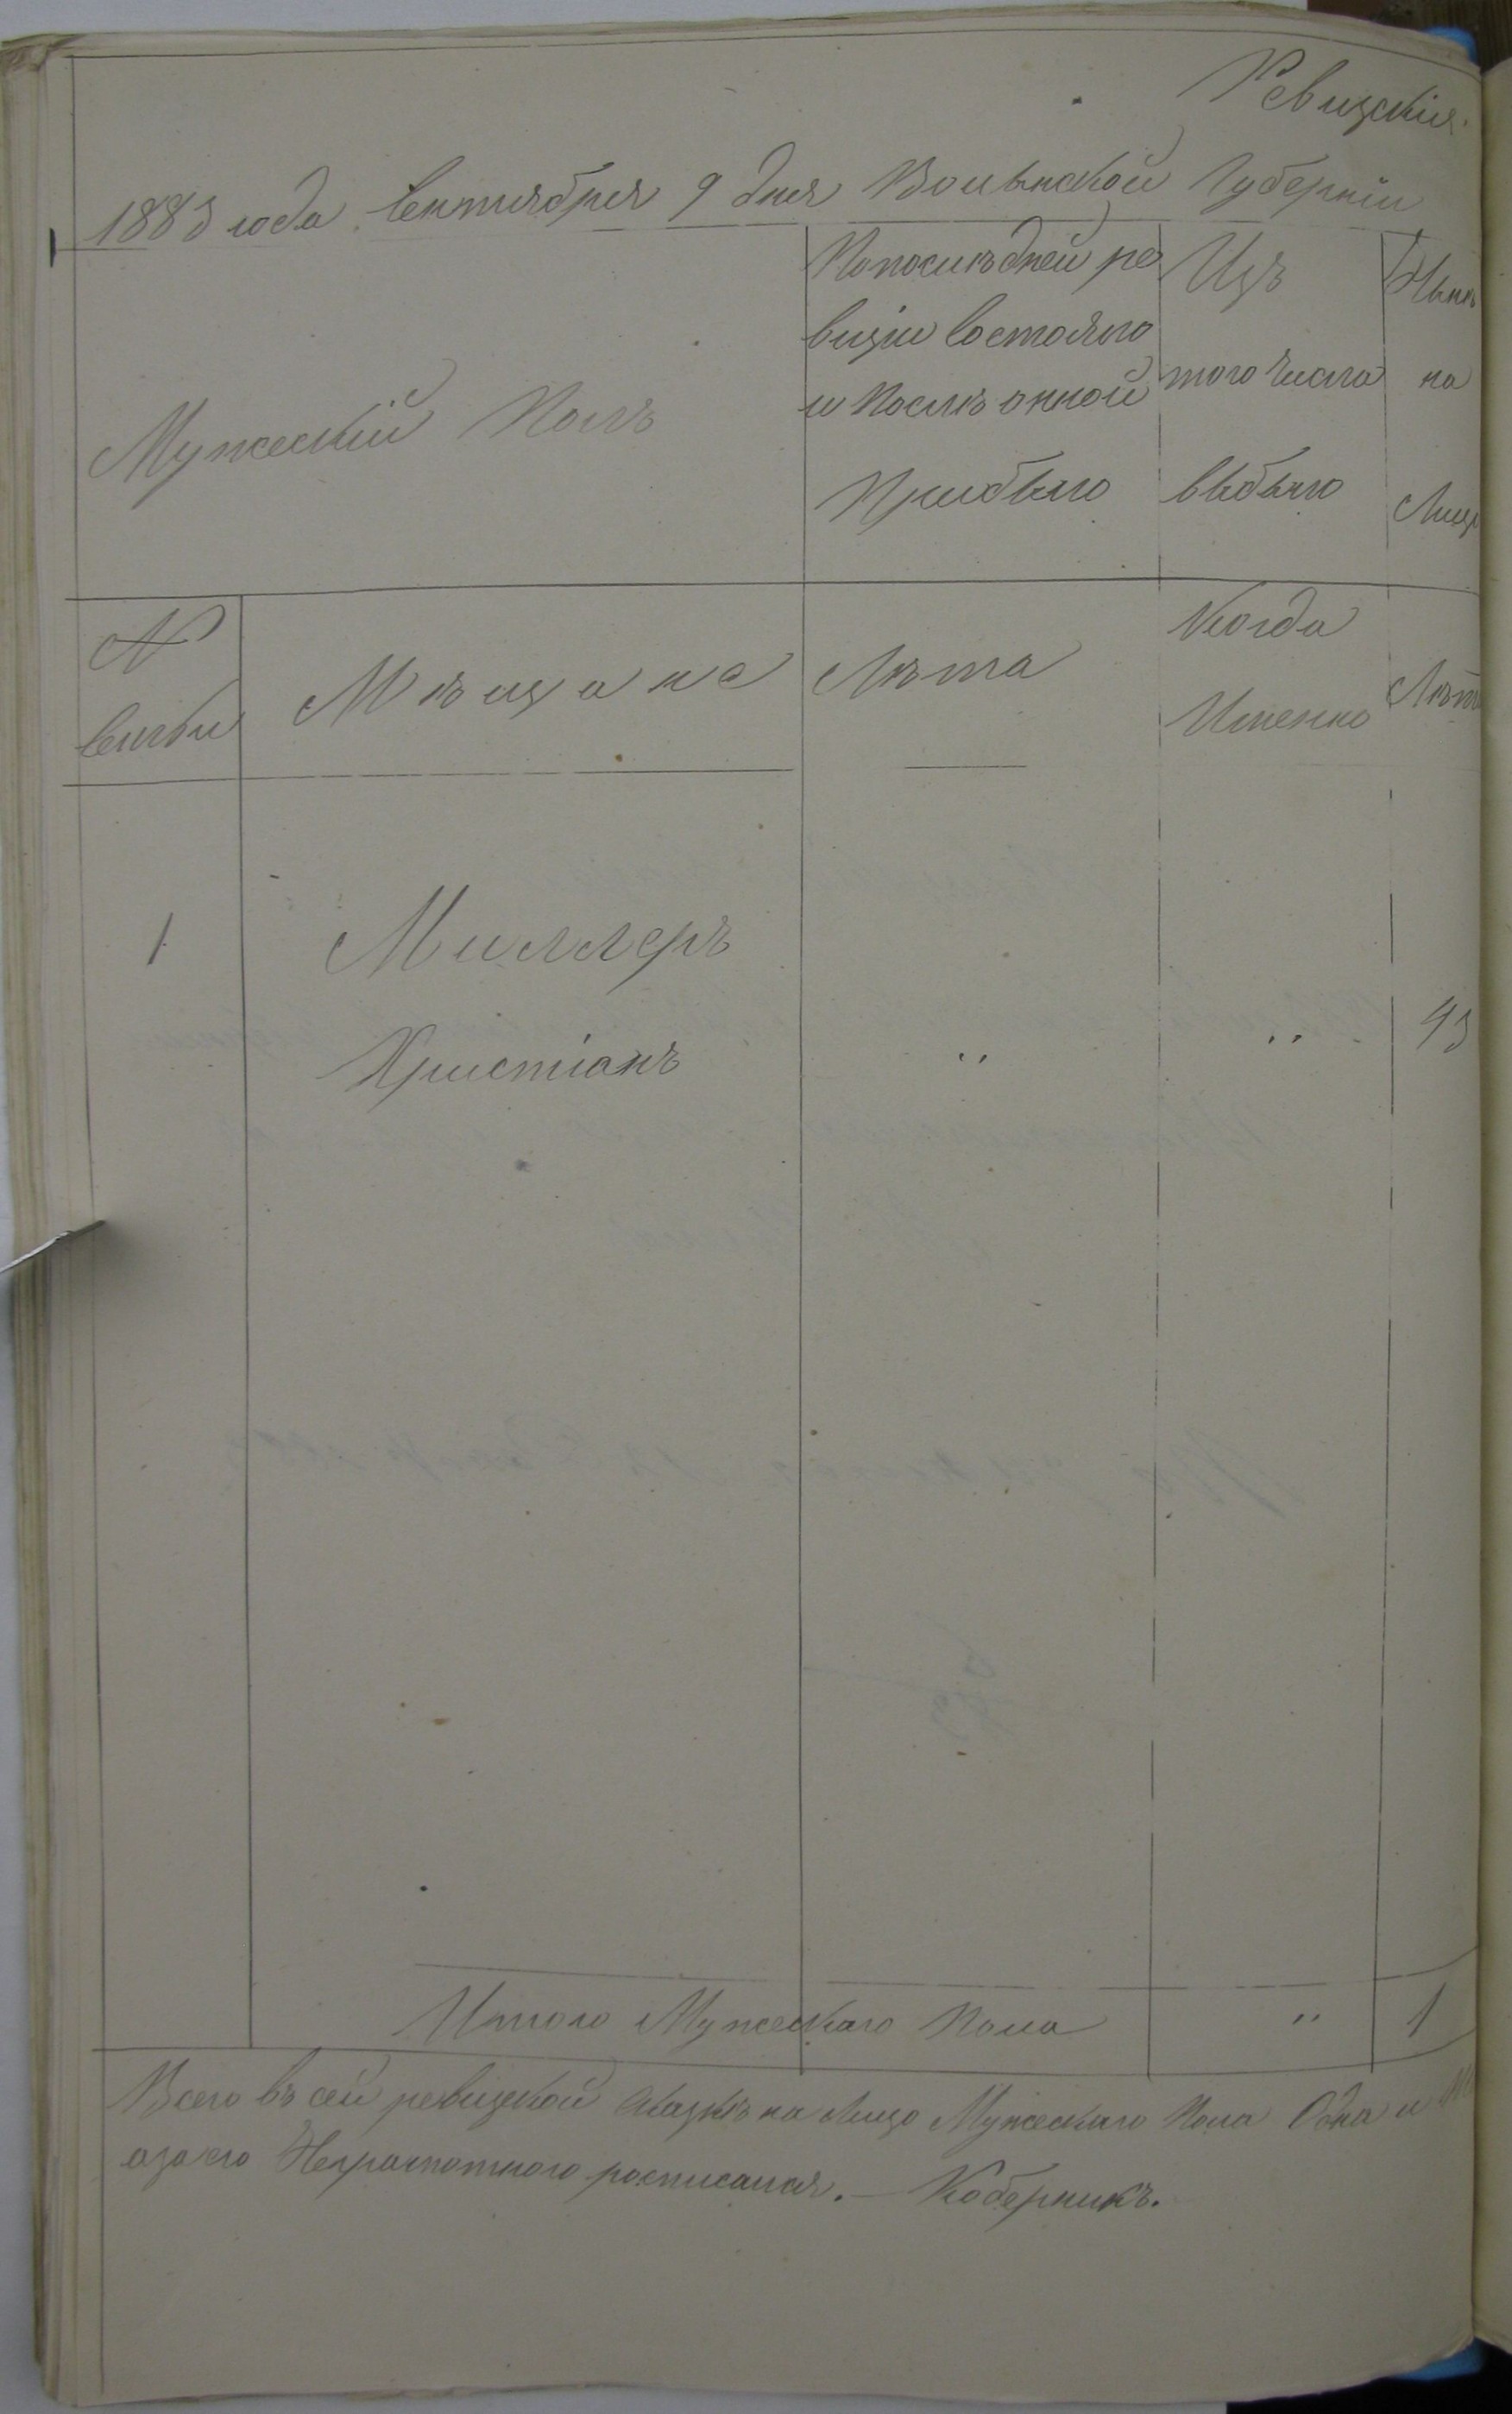 Ревизския
1883 года Сентября 9 дня Волынской Губерніи
Мужескій Полъ
Попослѣдней ре
визіи Состояло
и Послѣ онной
Прибыло
Изъ
того числа
выбыло
Нынѣ
на
Лицо
№
Семьи
Мѣщане
Лѣта
Когда
Именно
Лѣта
1
Миллеръ
Христіанъ
"
"
43
Итого Мужескаго Пола
"
1
Всего въ сей ревизской сказкѣ на Лицо Мужескаго Пола Одна и
азаего Неграмотного росписался. — Коберникъ.